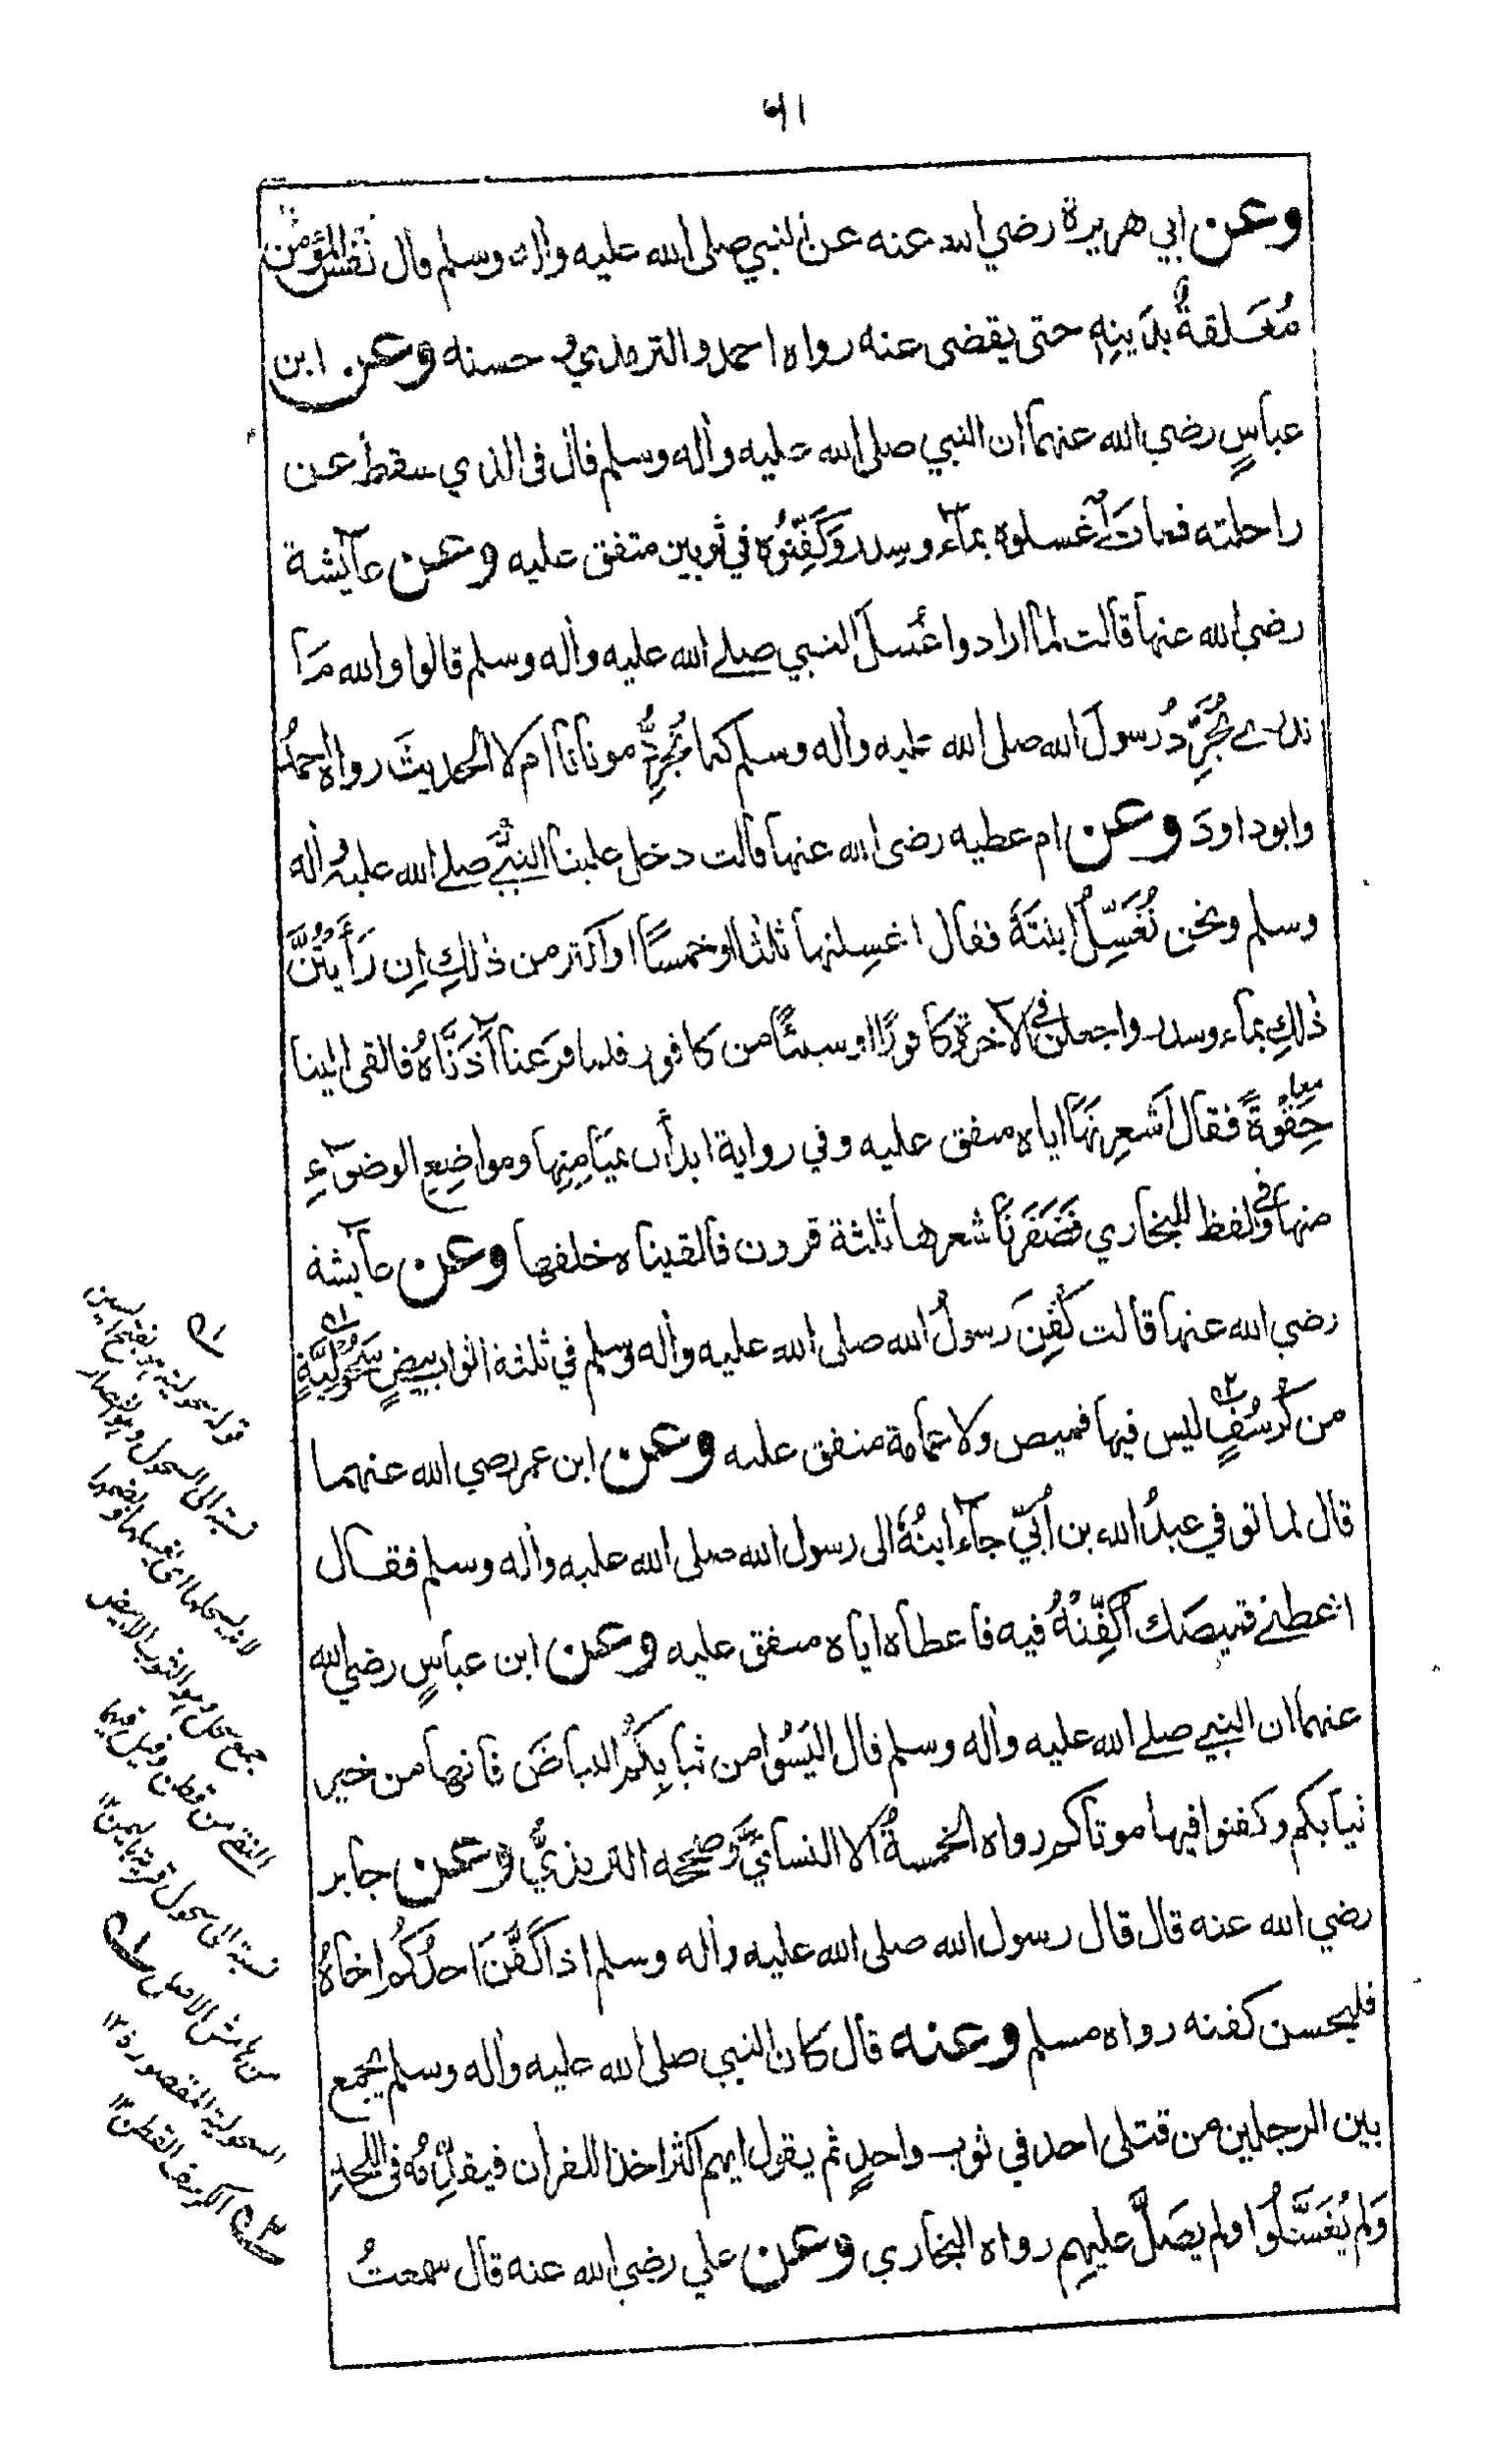 ٦١
وعن ابي هريرة رضي الله عنه عن النبي صلى الله عليه وأله وسلم قال نَفْسُ المؤمن
مُعَلقةٌ بدَينِهِ حتى يقضى عنه رواه احمد والترمذي و حسنه وعن ابن
عباسٍ رضي الله عنهما ان النبي صلى الله عليه وأله وسلم قال فى الذي سقط عن
راحلته فمات اغسلوه بمآء وسدر وَكَفِّنُوه في ثوبين متفق عليه وعن عآيشة
رضي الله عنها قالت لما ارادوا غُسلَ النبي صلے الله عليه وأله وسلم قالوا والله مَا
ندرے نُجَرِّدُ رسولَ الله صلى الله عليه وأله وسلم كما نُجَرِّدُ موتانا ام لا الحديثَ رواه احمدُ
وابوداودَ وعن ام عطيه رضى الله عنها قالت دخل علينا النبيُّ صلے الله عليه وأله
وسلم ونحن نُغَسِّلُ ابنتَهُ فقال اغسِلنها ثلثا او خمسًا او اكثر من ذٰلكِ اِن رَأَيتُنَّ
ذٰلكِ بمآء وسدر واجعلن في الاخرة كافورًا او شيئًا من كافور فلما فرغنا آذَنَّاهُ فالقى الينا
حِقْوَهُ فقال اَشعِرنَهَا اياه متفق عليه وفي رواية ابدأن بمَيَامِنِها ومواضِعِ الوضوٓءِ
منها وفي لفظ للبخاري فَضَفَرنَا شعرها ثلثة قرون فالقيناه خلفها وعن عآيشة
رضي الله عنها قالت كُفِّنَ رسولُ الله صلى الله عليه وأله وسلم في ثلثة اثواب بيضٍ سَحُولِيَّةٍ
من كُرسُفٍ ليس فيها قميص ولا عمامة متفق عليه وعن ابن عمر رضي الله عنهما
قال لما توفي عبدُ الله بن اُبيّ جآء ابنُهُ الى رسول الله صلى الله عليه وأله وسلم فقال
اعطنے قميصَك اُكَفِّنْهُ فيه فاعطاه اياه متفق عليه وعن ابن عباسٍ رضي الله
عنهما ان النبي صلے الله عليه وأله وسلم قال البَسُوا من ثيابِكُمُ البياضَ فانها من خير
ثيابكم وكفنوا فيها موتاكم رواه الخمسةُ الا النسائيَّ وصححه الترمذيُّ وعن جابر
رضي الله عنه قال قال رسول الله صلى الله عليه وأله وسلم اذا كَفَّنَ احدُكُم اخاهُ
فليحسن كفنه رواه مسلم وعنه قال كان النبي صلى الله عليه وأله وسلم يجمع
بين الرجلين من قتلى احد في ثوب واحدٍ ثم يقول ايهم اكثر اخذا للقرأن فيقدِّمُهُ فى اللحدِ
وَلم يُغَسَّلُوا ولم يصَلَّ عليهم رواه البخاري وعن علي رضي الله عنه قال سمعتُ
قوله سحولية هو بفتح السين
نسبة الى السحول وهو القصار
لانه يسحلها اى يغسلها او بضمها
جمع سحل وهو الثوب الابيض
النقي من قطن وقيل فيها
نسبة الى سحول قرية باليمن ١٢
من هامش الاصل
السحولية المقصورة ١٢
الكرسف القطن ١٢